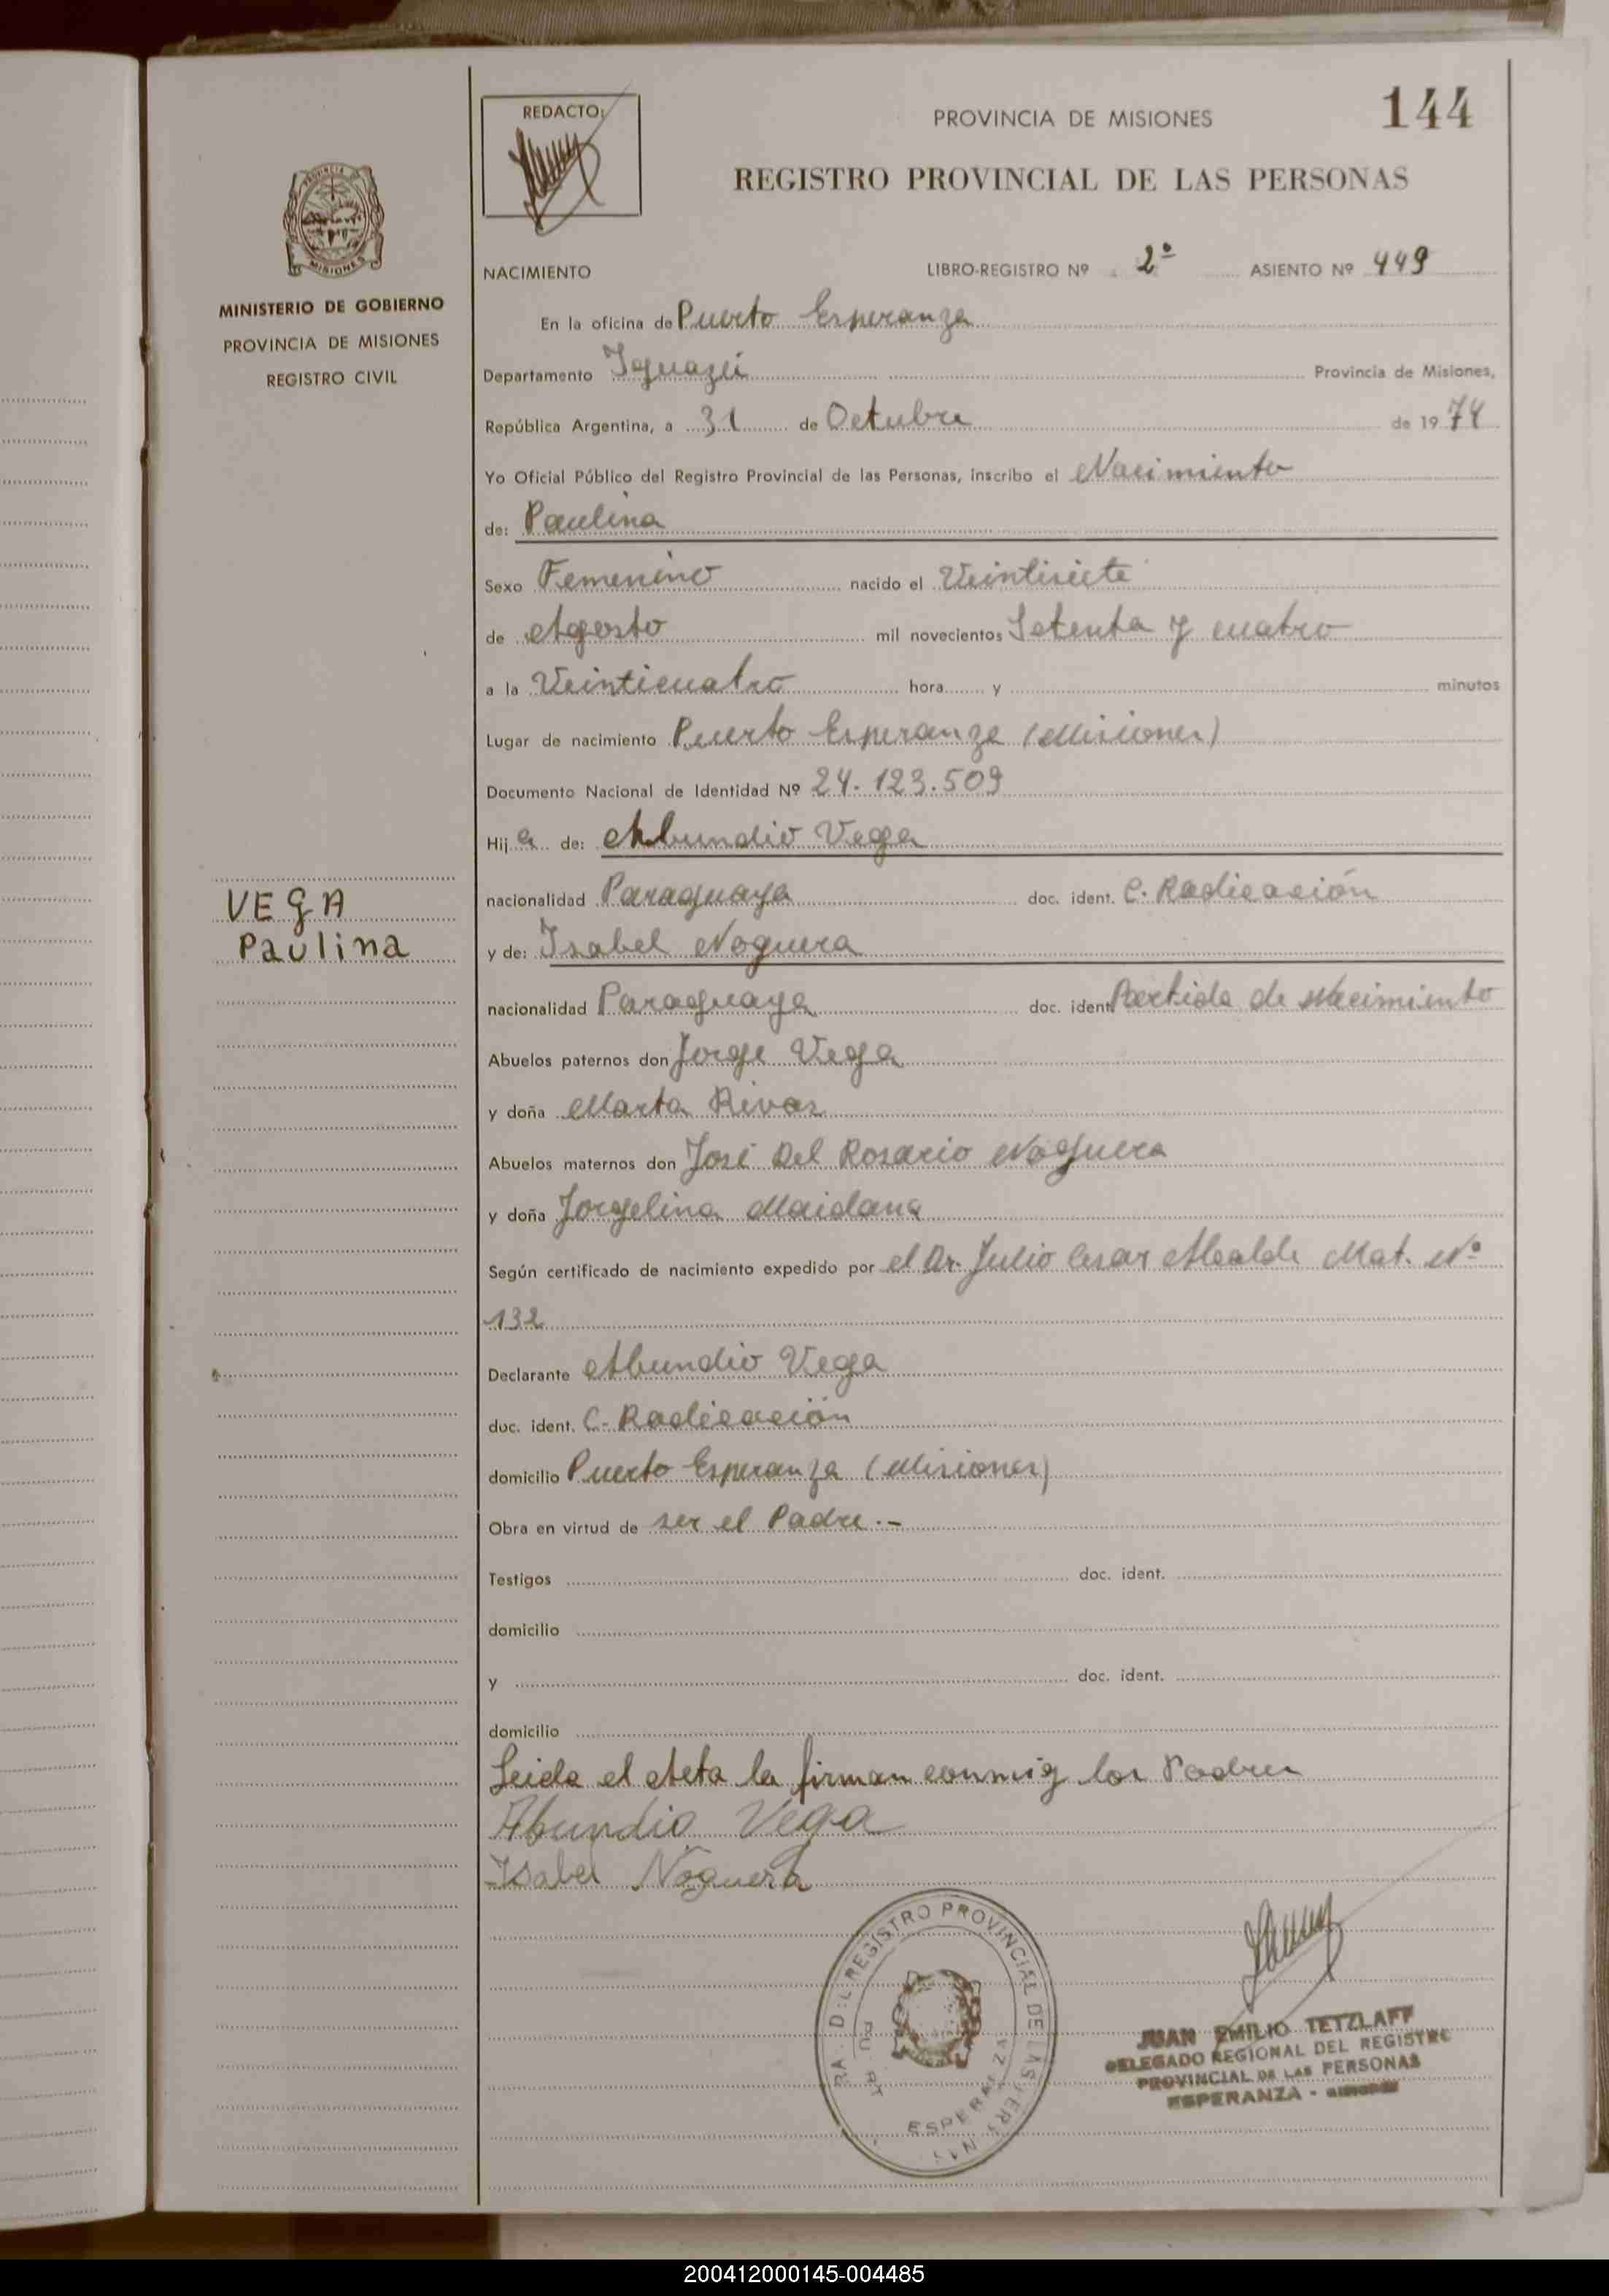 144
REDACTO:
PROVINCIA DE MISIONES
REGISTRO PROVINCIAL DE LAS PERSONAS
PROVINCIA
MISIONES
MINISTERIO DE GOBIERNO
PROVINCIA DE MISIONES
REGISTRO CIVIL
NACIMIENTO LIBRO-REGISTRO Nº 2º ASIENTO Nº 449
En la oficina de Puerto Esperanza
Departamento Iguazú Provincia de Misiones,
República Argentina, a 31 de Octubre de 1974
Yo Oficial Público del Registro Provincial de las Personas, inscribo el Nacimiento
de: Paulina
Sexo Femenino nacido el Veintisiete
de Agosto mil novecientos Setenta y cuatro
a la Veinticuatro hora y minutos
Lugar de nacimiento Puerto Esperanza (Misiones)
Documento Nacional de Identidad Nº 24.123.509
Hija de: Abundio Vega
VEgA
Paulina
nacionalidad Paraguaya doc. ident. C. Radicación
y de: Isabel Noguera
nacionalidad Paraguaya doc. ident. Partida de Nacimiento
Abuelos paternos don Jorge Vega
y doña Marta Rivas
Abuelos maternos don José Del Rosario Noguera
y doña Jorgelina Maidana
Según certificado de nacimiento expedido por el Dr. Julio Cesar Alcalde Mat. Nº
132
Declarante Abundio Vega
doc. ident. C- Radicación
domicilio Puerto Esperanza (Misiones)
Obra en virtud de ser el Padre.-
Testigos doc. ident.
domicilio
y doc. ident.
domicilio
Leida el Acta la firman conmig los Padres
Abundio Vega
Isabel Noguera
REGISTRO PROVINCIAL DE LAS
ESPERANZA
JUAN EMILIO TETZLAFF
DELEGADO REGIONAL DEL REGISTRO
PROVINCIAL DE LAS PERSONAS
ESPERANZA -
200412000145-004485